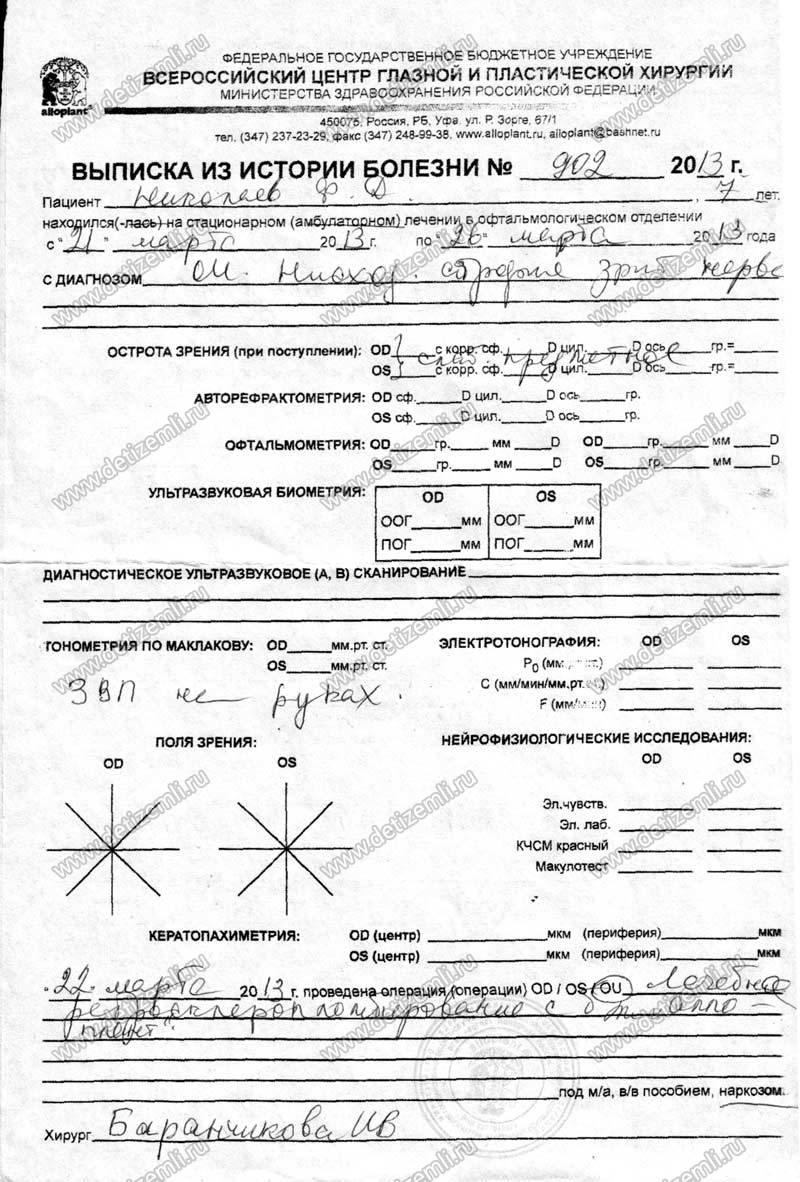 ФЕДЕРАЛЬНОЕ ГОСУДАРСТВЕННОЕ БЮДЖЕТНОЕ УЧРЕЖДЕНИЕ
ВСЕРОССИЙСКИЙ ЦЕНТР ГЛАЗНОЙ И ПЛАСТИЧЕСКОЙ ХИРУРГИИ
МИНИСТЕРСТВА ЗДРАВООХРАНЕНИЯ РОССИЙСКОЙ ФЕДЕРАЦИИ
alloplant
450075, Россия, РБ, Уфа, ул. Р. Зорге, 67/1
тел. (347) 237-23-29, факс (347) 248-99-38, www.alloplant.ru, alloplant@bashnet.ru
ВЫПИСКА ИЗ ИСТОРИИ БОЛЕЗНИ № 902 2013 г.
Пациент Николаев Ф. Д. , 7 лет.
находился(-лась) на стационарном (амбулаторном) лечении в офтальмологическом отделении
с "21" марта 2013 г. по "26" марта 2013 года
С ДИАГНОЗОМ OU. Нисход. зрит нерва
ОСТРОТА ЗРЕНИЯ (при поступлении): OD с корр. сф. D цил. D ось гр.=
предметное
OS с корр. сф. D цил. D ось гр.=
АВТОРЕФРАКТОМЕТРИЯ: OD сф. D цил. D ось гр.
OS сф. D цил. D ось гр.
ОФТАЛЬМОМЕТРИЯ: OD гр. мм D OD гр. мм D
OS гр. мм D OS гр. мм D
УЛЬТРАЗВУКОВАЯ БИОМЕТРИЯ: OD OS
ООГ мм ООГ мм
ПОГ мм ПОГ мм
ДИАГНОСТИЧЕСКОЕ УЛЬТРАЗВУКОВОЕ (А, В) СКАНИРОВАНИЕ
ТОНОМЕТРИЯ ПО МАКЛАКОВУ: OD мм.рт. ст. ЭЛЕКТРОТОНОГРАФИЯ: OD OS
OS мм.рт. ст. P0 (мм
С (мм/мин/мм.рт.
F (мм/мин)
ЗВП на руках.
ПОЛЯ ЗРЕНИЯ: НЕЙРОФИЗИОЛОГИЧЕСКИЕ ИССЛЕДОВАНИЯ:
OD OS OD OS
Эл.чувств.
Эл. лаб.
КЧСМ красный
Макулотест
КЕРАТОПАХИМЕТРИЯ: OD (центр) мкм (периферия) мкм
OS (центр) мкм (периферия) мкм
"22" марта 2013 г. проведена операция (операции) OD / OS / OU Лечебное
ретросклеропломбирование с б алло-
плант".
под м/а, в/в пособием, наркозом.
Хирург Баранчикова ИВ
www.detizemli.ru